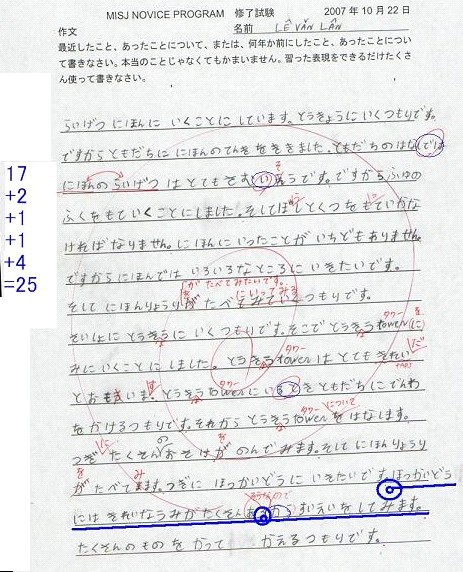 MISJ NOVICE PROGRAM 修了試験 2007年10月22日
作文 名前 LÊ VĂN LÂN
最近したこと、あったことについて、または、何年か前にしたこと、あったことについ
て書きなさい。本当のことじゃなくてもかまいません。習った表現をできるだけたくさ
ん使って書きなさい。
17
+2
+1
+1
+4
=25
らいげつ にほんに いくことに しています。とうきょうに いくつもりです。
ですから ともだちに にほんの てんきを ききました。ともだちの はなしでは
にほんの らいげつ は とても さむいそうです。ですから ふゆの
ふくを もて いくことに しました。そして ぼうしと くつを もて いかな
ければ なりません。にほんに いったことが いちども ありません。
ですから にほんでは いろいろな ところに いきたいです。
が たべてみたいです。
そして にほんりょうりが たべて みて いくつもりです。
さいしょに とうきょうに いくつもりです。そこで とうきょう towerに
みに いくことに しました。とうきょう towerは とても きれい
と おもいま とうきょう towerに いると きともだちに でんわ
を かけるつもりです。それから とうきょう towerを はなします。
つぎ たくさん おさけが のんでみます。そして にほんりょうり
が たべてみます。つぎに ほっかいどうに いきたいです。ほっかいどう
には きれいな うみが たくさん あるから すいえいを してみます。
たくさんの ものを かって かえるつもりです。
タワー
タワー
タワー
タワー
について